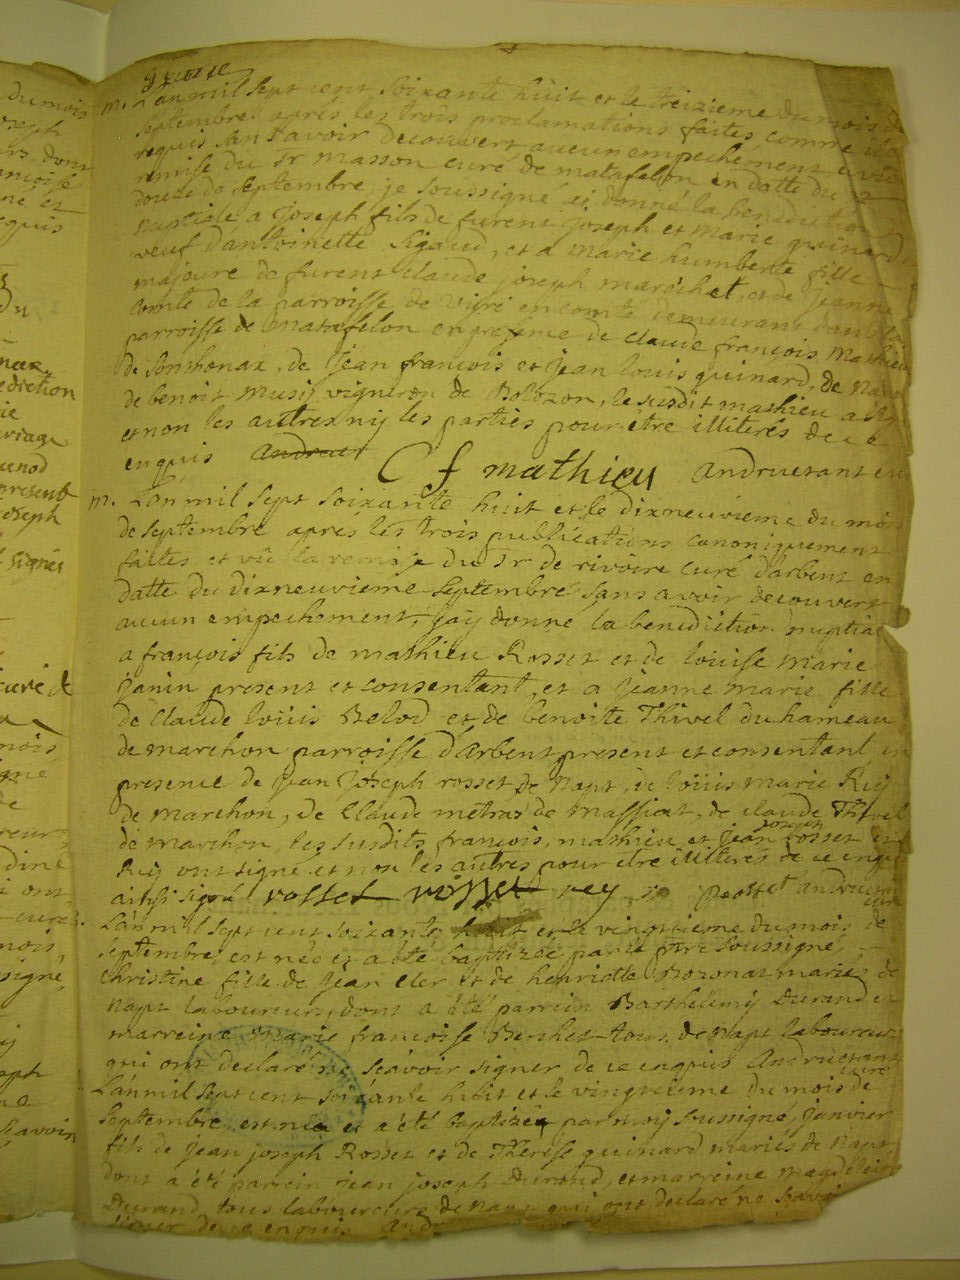 du mois
Joseph
dont
ançoise
me et
equis
Du
edretion
ie
uriage
unod
present
oseph
signés
curé
mois
gne
de
reur,
dine
ont
curé
nois
signé,
eph
ne
scavoir
quatre
m. L'an mil sept cent soixante huit et le treizieme du mois de
septembre après les trois proclamations faites comme il est
requis sans avoir decouvert aucun empechement et vû la
remise du Sr masson curé de matafelon en datte du
douze de septembre, je soussigné ai donné la benediction
nuptiale a Joseph fils de furent joseph et marie guinard
veuf d'antoinette Sigaud, et a marie humberte fille
majeure de furent claude joseph maréchet, et de jeanne
comte de la parroisse de viré en comté demeurant dans la
parroisse de matafelon en presence de claude françois mathieu
de Sonthonax, de jean françois et jean louis guinard, de Napt
de benoit musy vigneron de Bolozon, le susdit mathieu a signé
et non les autres ny les parties pour être illiterés de ce
enquis Andruet C f mathieu andruetant curé
m. L'an mil sept soixante huit et le dixneuvieme du mois
de septembre apres les trois publications canoniquement
faites, et vûe la remise du Sr de rivoire curé d'arbent en
datte du dixneuvieme septembre sans avoir decouvert
aucun empechement, j'ay donné la benediction nuptia
a françois fils de mathieu Rosset et de louise marie
Janin present et consentant, et a jeanne marie fille
de claude loüis Belod et de benoite Thivel du hameau
de marchon parroisse d'arbent present et consentant en
presence de jean joseph rosset de Napt, de loüis marie Rey
de marchon, de claude metras de massiat, de claude Thivel
de marchon, les susdits françois, mathieu et jean joseph rosset et
Rey ont signé et non les autres pour etre illiteres de ce enquis
ainsi signé rosset rosset rey rosset andruetant
curé
L'an mil sept cent soixante huit et le vingtieme du mois de
septembre, est née et a été baptizée par le ptre soussigné,
christine fille de jean cler et de henriette Bozonat mariés de
napt laboureurs, dont a été parrein Barthélémy Durand et
marreine marie françoise Berchet tous de napt laboureurs
qui ont declaré ny scavoir signer de ce enquis Andruetant
curé
L'an mil sept cent soixante huit et le vingtieme du mois de
septembre, est née et a été baptizée par moy sussigné, janvier
fils de jean joseph Rosset et de Therese guinard mariés de napt
dont a été parrein jean joseph Durand, et marreine magdeleine
Durand, tous laboureurs de napt qui ont declaré ne scavoir
signer de ce enquis Andr